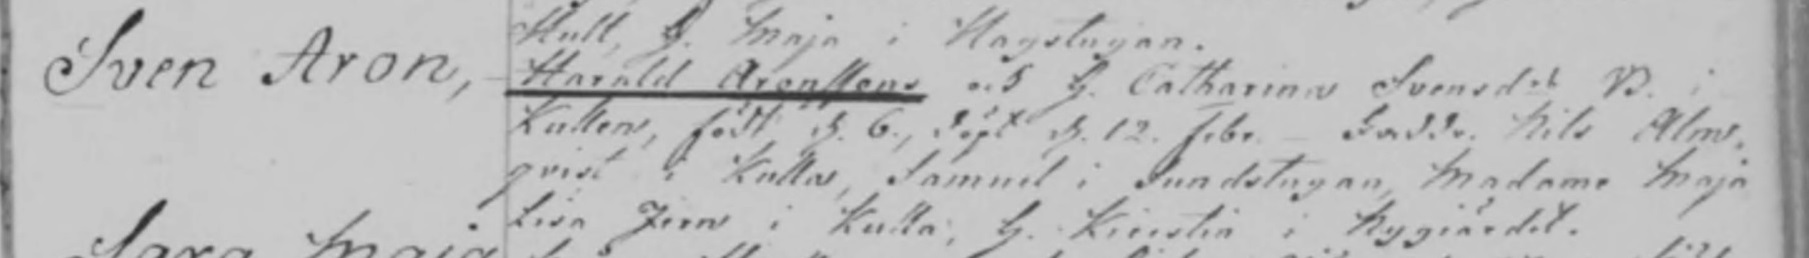 Hull, H. Maja i Hagstugan.
Sven Aron, Harald Aronssons och H. Catharina Svensdr B. i
Kullen, född d. 6., döpt d. 12. febr. Fadd. Nils Alm-
qvist i Kulla, Samuel i Sundstugan, Madame Maja
Lisa Jern i Kulla, H. Kierstin i Nygiärdet.
Sara Maja